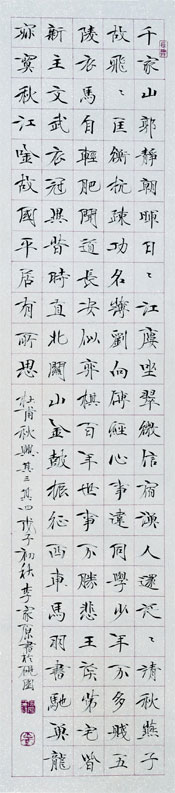 千家山郭靜朝暉日〻江廔坐翠微信宿漁人還泛〻清秋燕子
故飛〻匡衡抗疎功名薄劉向傳經心事違同學少年不多賤五
陵衣馬自輕肥聞道長安似弈棋百年世事不勝悲王侯第宅皆
新主文武衣冠異昔時直北關山金鼓振征西車馬羽書馳魚龍
寂寞秋江冷故國平居有所思
杜甫秋興其三其四戊子初秋李家原書於硯園